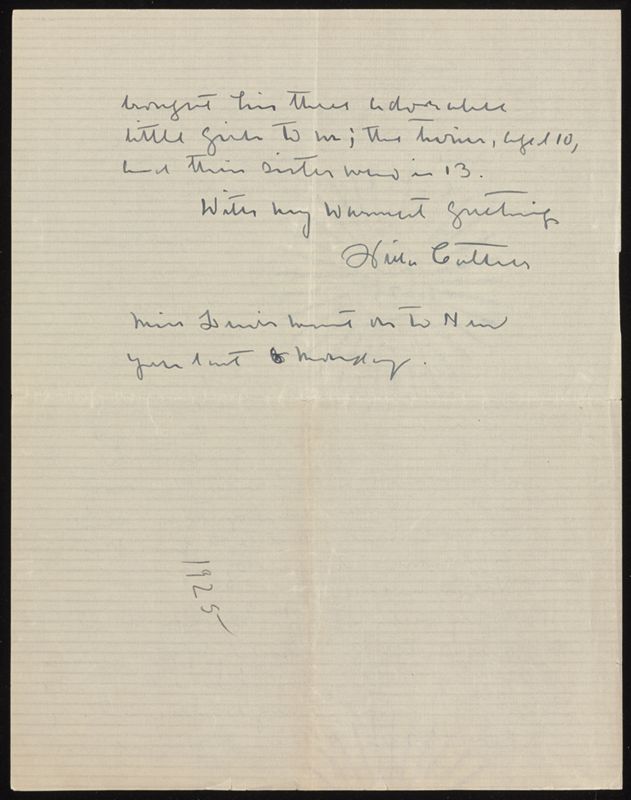 brought his three adorable
little girls to me; the twins, aged 10,
and their sister who is 13.
With my warmest greetings
Willa Cather
Miss Lewis went on to New
York last Monday.
1925